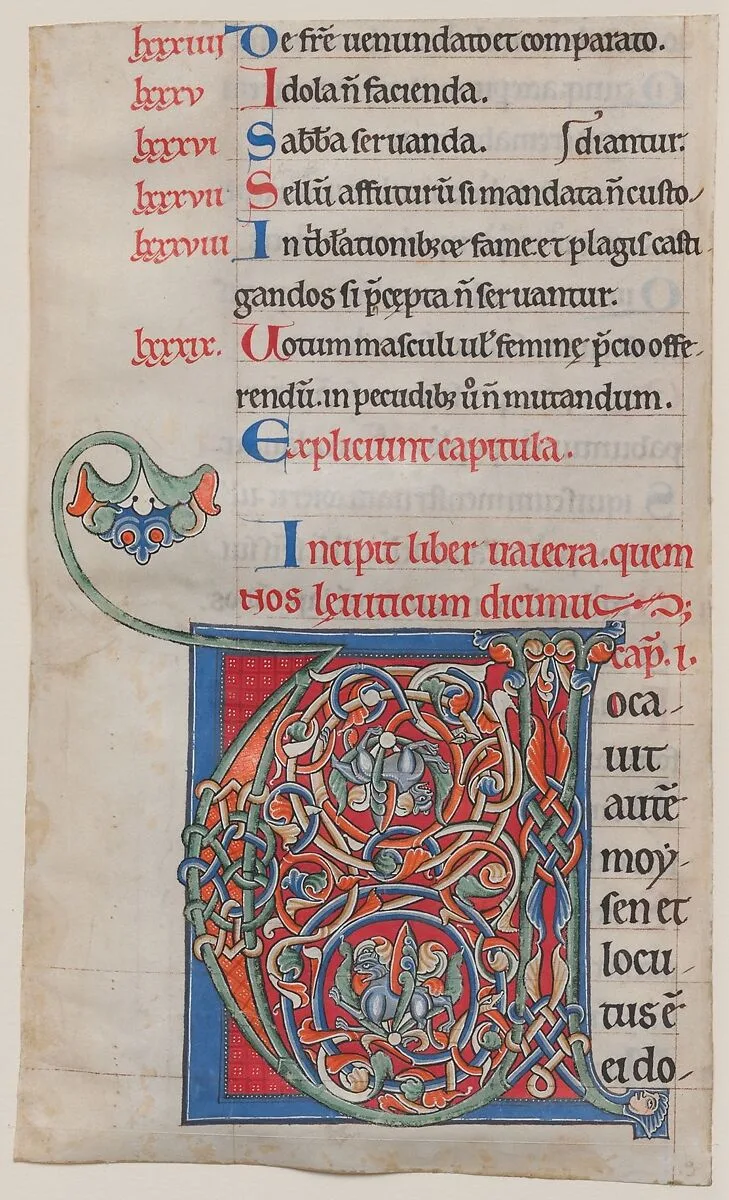 lxxxiiii De frē uenundato et comparato.
lxxxv Idola n̄ facienda.
lxxxvi Sabb̄a seruanda. diantur.
lxxxvii Sellū affuturū si mandata n̄ custo
lxxxviii In t̄bl̄ationibꝫ fame. et plagis casti
gandos si p̄cępta n̄ seruantur.
lxxxix. Uotum masculi ul̄ feminę p̄cio offe-
rendū. in pecudibꝫ ůn̄ mutandum.
Expliciunt capitula.
Incipit liber uaiecra. quem
nos leuiticum dicimus;
cap̄. i.
Uoca-
uit
autē
moẏ-
sen et
locu
tus ē
ei do-